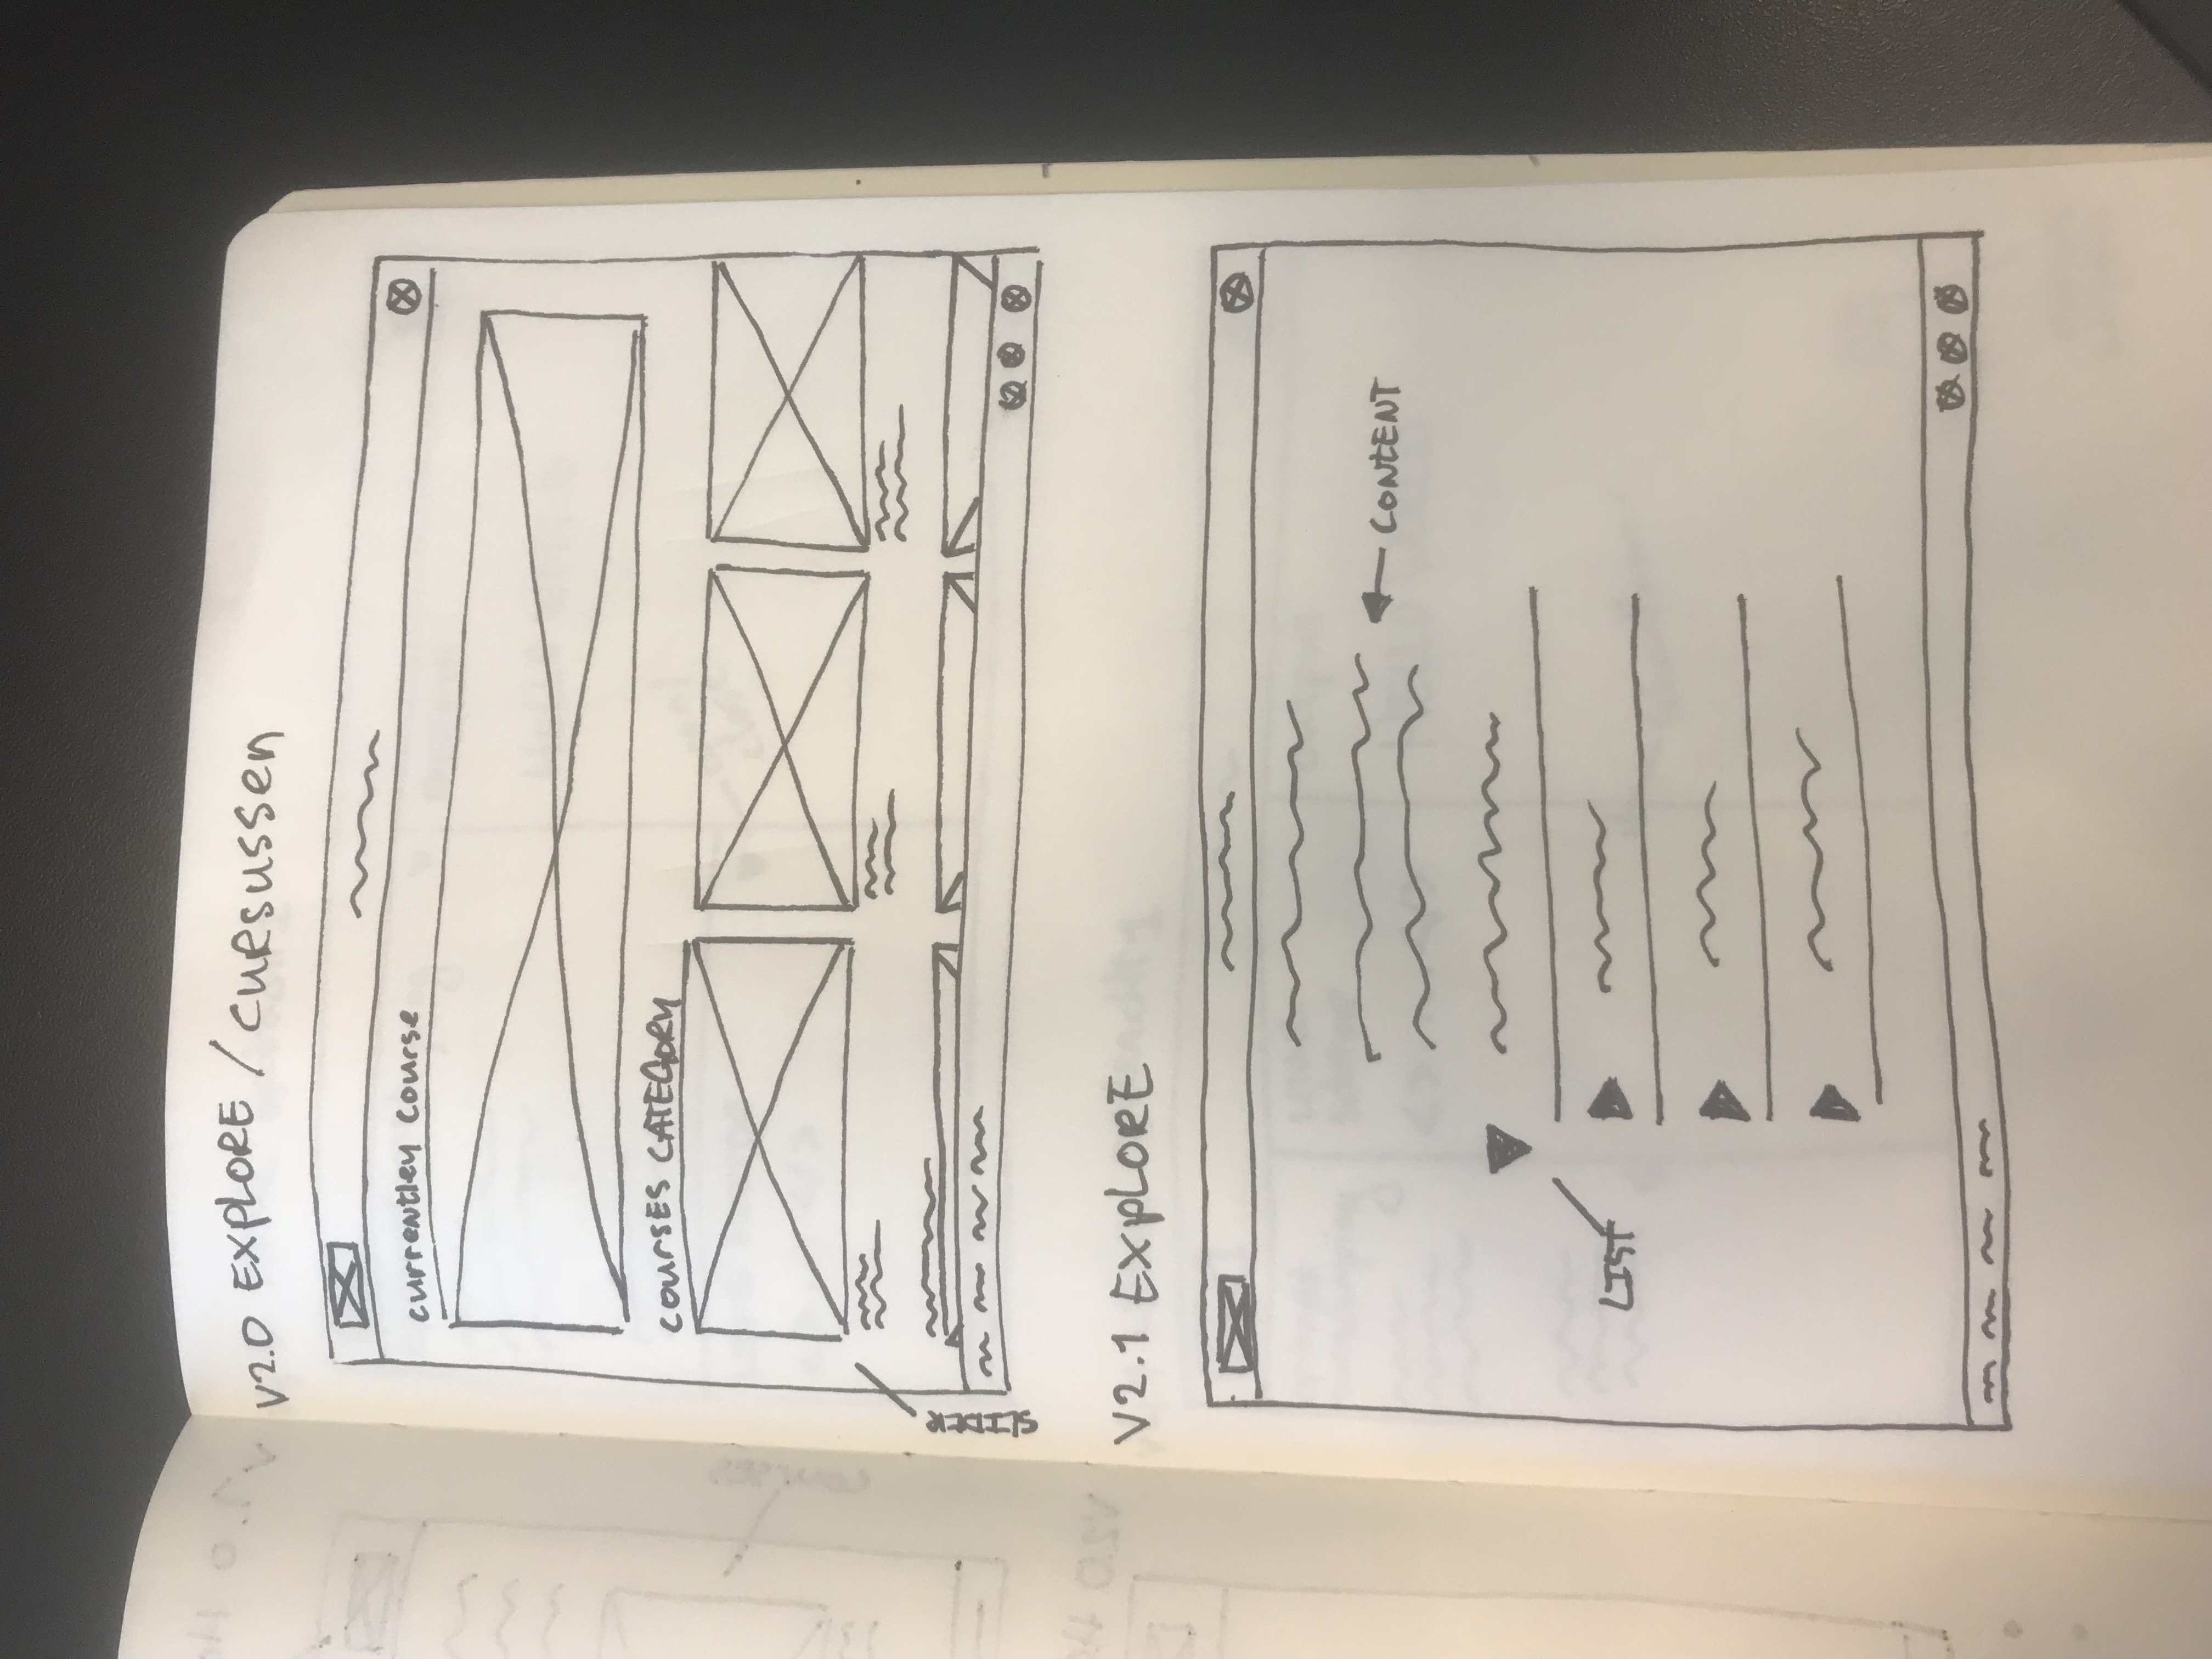 V2.0 EXPLORE / CURSUSSEN
CURRENTLEY COURSE
COURSES CATEGORY
SLIDER
V2.1 EXPLORE
CONTENT
LIST